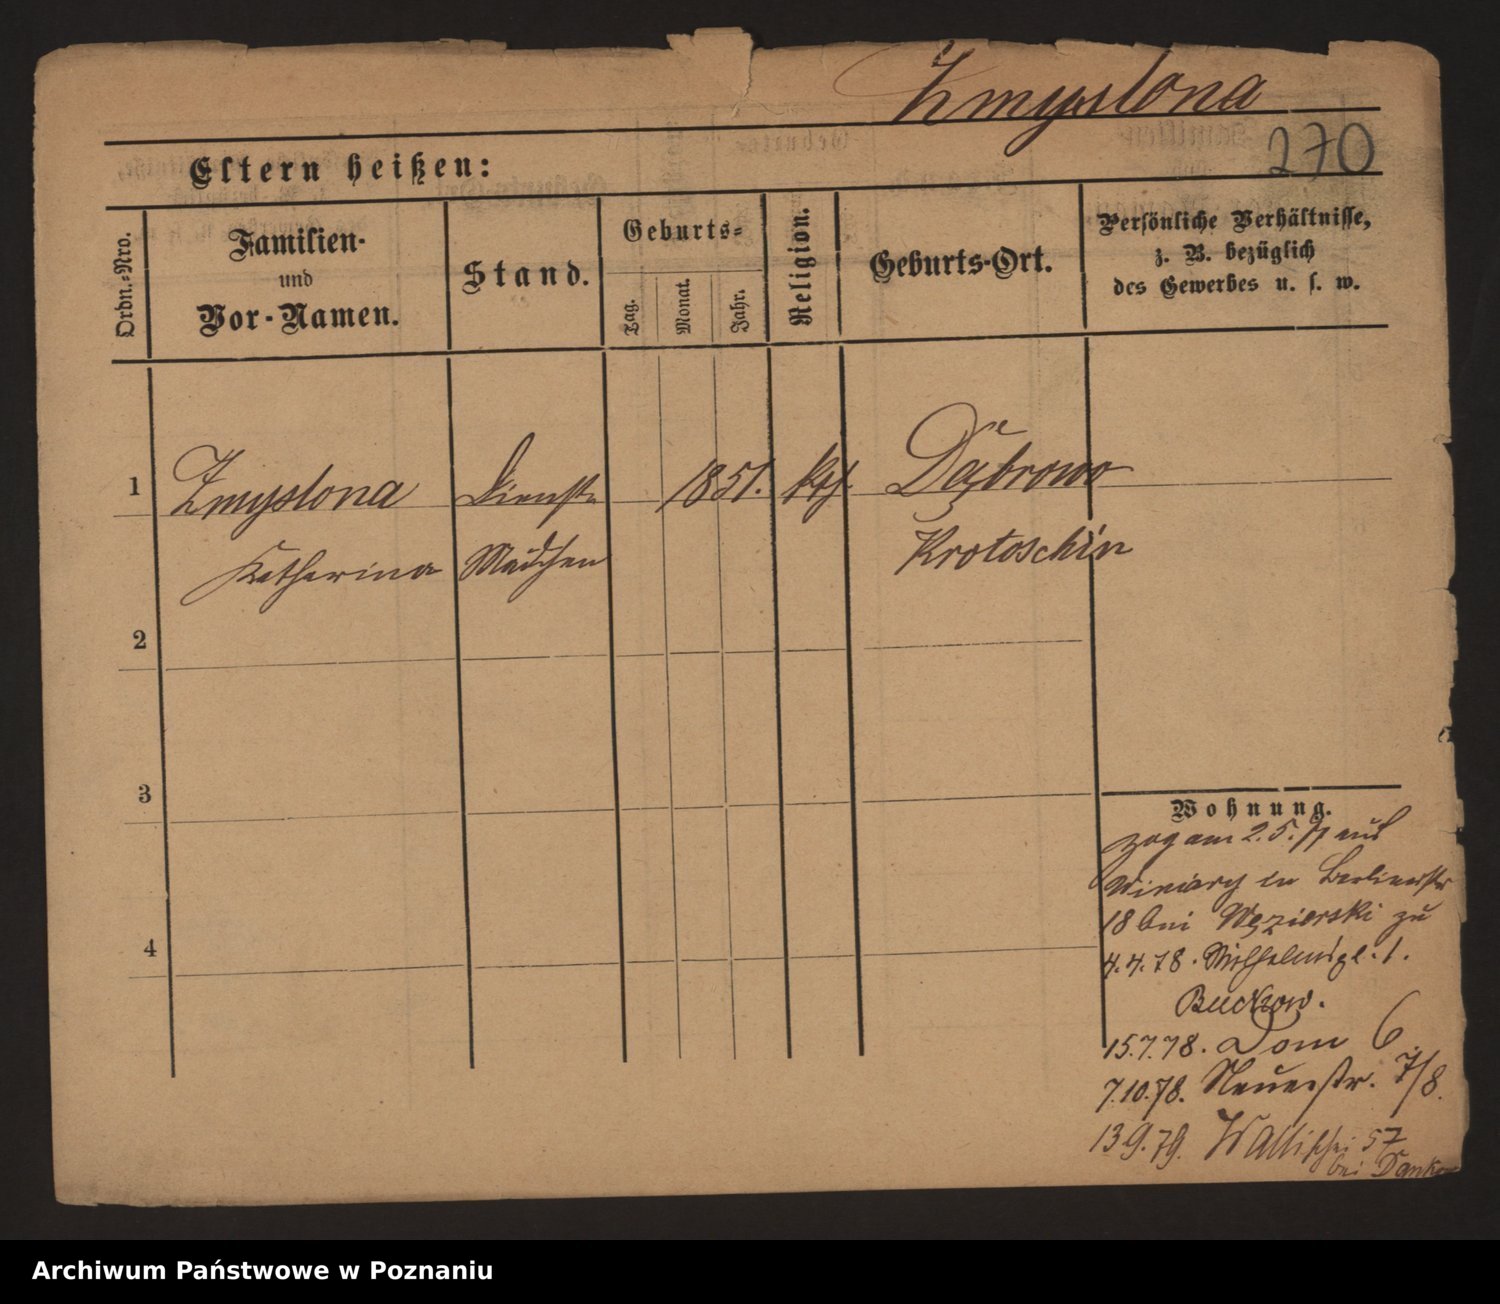 Zmyslona
270
Eltern heißen:
Ordn.-Nro.
Familien-
und
Vor-Namen.
Stand.
Geburts-
Tag.
Monat.
Jahr.
Religion.
Geburts-Ort.
Persönliche Verhältnisse,
z. B. bezüglich
des Gewerbes u. s. w.
1 Zmyslona Dienst- 1851. kth. Dąbrowo
Katharina Mädchen Krotoschin
2
3
4
Wohnung.
zog am 2.5. aus
Winiary in Berlinerstr
18 bei Węzierski zu
4.4.78. Wilhelmspl. 1.
Buckow.
15.7.78. Dom 6
7.10.78. Neuestr. 7/8.
13.9.79. Wallischei 57
bei
Archiwum Państwowe w Poznaniu